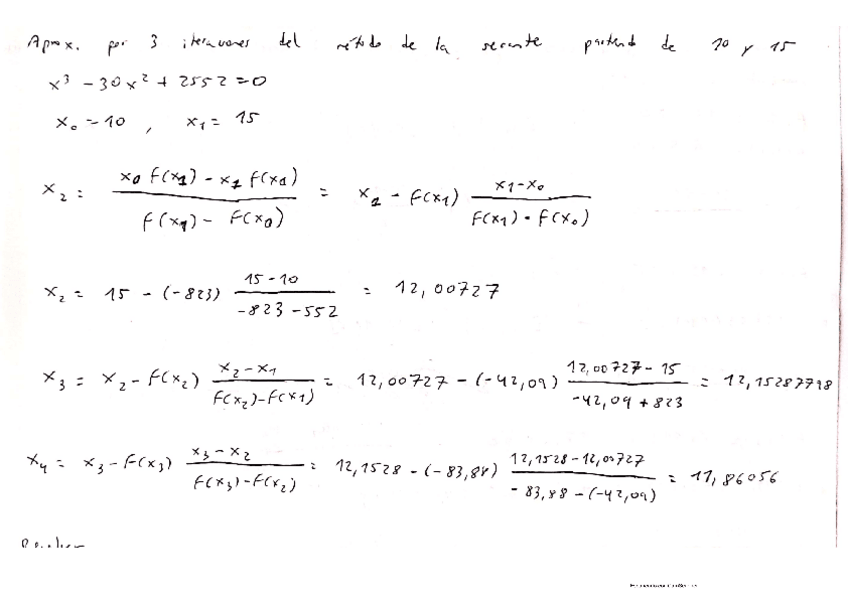 Aprox. por 3 iteraciones del método de la secante partiendo de 10 y 15
x³ - 30x² + 2552 = 0
x₀ = 10 , x₁ = 15
x₂ = (x₀ f(x₁) - x₁ f(x₀)) / (f(x₁) - f(x₀)) = x₁ - f(x₁) (x₁ - x₀) / (f(x₁) - f(x₀))
x₂ = 15 - (-823) (15 - 10) / (-823 - 552) = 12,00727
x₃ = x₂ - f(x₂) (x₂ - x₁) / (f(x₂) - f(x₁)) = 12,00727 - (-42,09) (12,00727 - 15) / (-42,09 + 823) = 12,15287798
x₄ = x₃ - f(x₃) (x₃ - x₂) / (f(x₃) - f(x₂)) = 12,1528 - (-83,88) (12,1528 - 12,00727) / (-83,88 - (-42,09)) = 11,86056